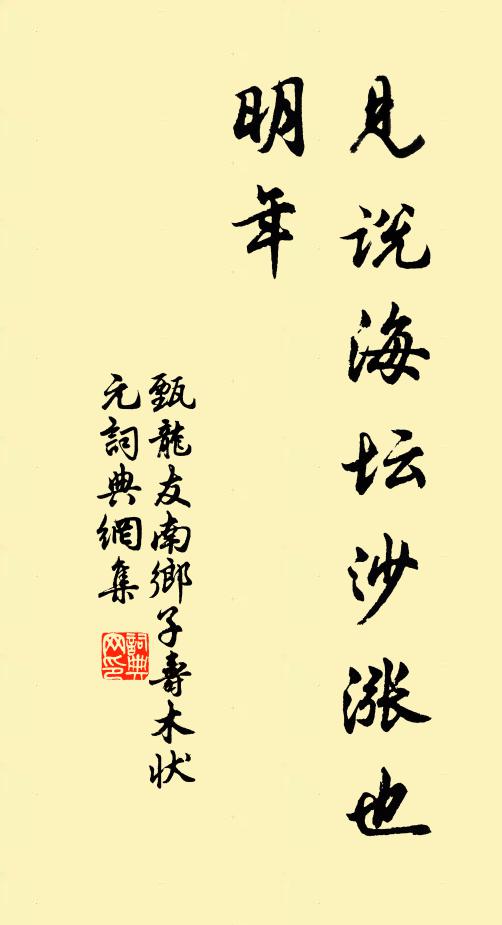 见说海坛沙涨也
明年
甄龍友南鄉子壽木状
元詞典網集
詞典网印